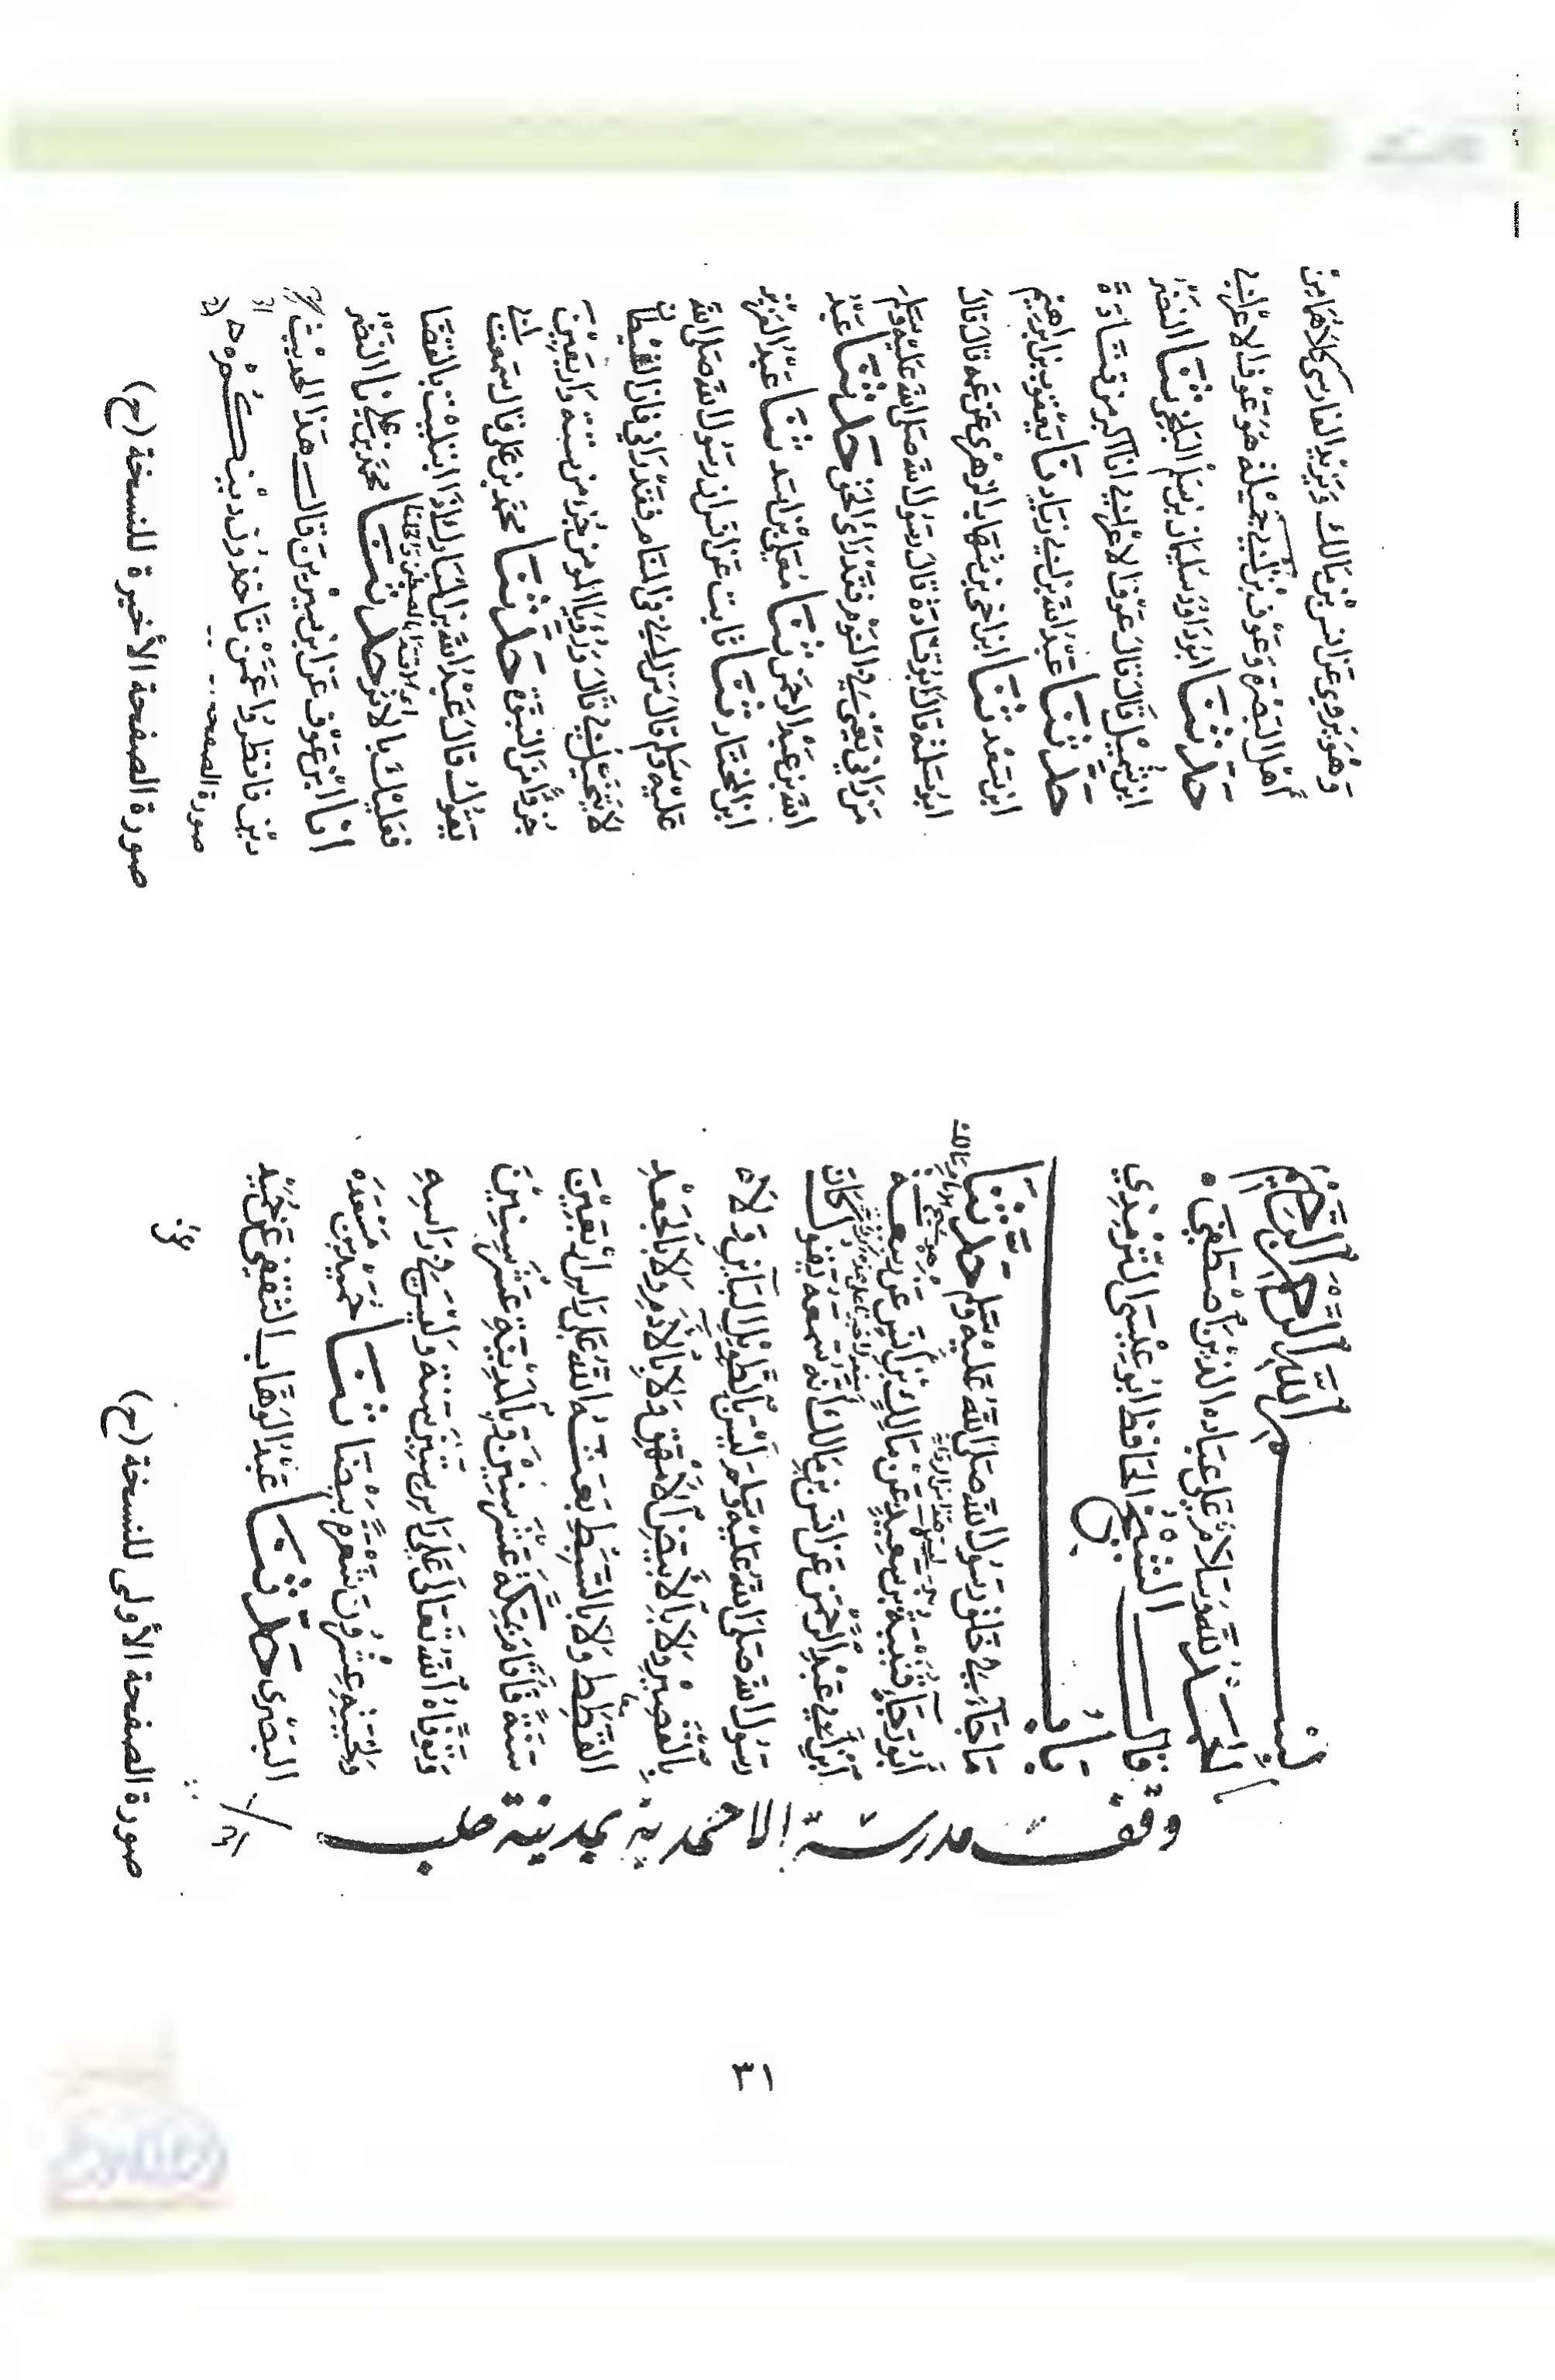 بسم الله الرحمن الرحيم
الحمد لله وسلام على عباده الذين اصطفى
قال الشيخ الحافظ ابو عيسى الترمذي
باب
ما جآء في خلق رسول الله صلى الله عليه وسلم حدثنا
أبو رجآء قتيبة بن سعيد عن مالك بن أنس عن ربيعة
ابن أبي عبد الرحمن عن انس بن مالك أنه سمعه يقول كان
رسول الله صلى الله عليه وسلم ليس بالطويل البآئن ولا
بالقصير ولا بالأبيض الأمهق ولا بالآدم ولا بالجعد
القطط ولا بالسبط بعثه الله على راس اربعين
سنة فاقام بمكة عشر سنين وبالمدينة عشر سنين
وتوفاه الله تعالى على راس ستين سنه وليس في راسه
ولحيته عشرون شعرة بيضا ثنا حميد بن مسعده
البصرى حدثنا عبد الوهاب الثقفي عن حميد
وقف مدرسة الاحمدية بمدينة حلب
صورة الصفحة الأولى للنسخة (ح)
وهو يروي عن انس بن مالك ويزيد الفارسى كلاهما من
أهل البصرة وعوف بن أبي جميلة هو عوف الاعرابي
حدثنا ابو داود سليمان بن سلم البلخي ثنا النضر
ابن شميل قال قال عوف الاعرابي انا اكبر من قتادة
حدثنا عبد الله بن أبي زياد ثنا يعقوب بن ابراهيم
ابن سعد ثنا ابن اخي بن شهاب الزهري عن عمه قال قال
ابو سلمة قال ابو قتادة قال رسول الله صلى الله عليه وسلم
من رآني يعني في النوم فقد راى الحق حدثنا عبد
الله بن عبد الرحمن ثنا معلى بن اسد ثنا عبد العزيز
ابن المختار ثنا ثابت عن انس ان رسول الله صلى الله
عليه وسلم قال من رآني في المنام فقد رآني فان الشيطان
لا يتخيل بي قال ورؤيا المومن جزء من ستة واربعين
جزأ من النبوة حدثنا محمد بن علي قال سمعت ابي
يقول قال عبد الله بن المبارك اذا ابتليت بالقضا
فعليك بالاثر حدثنا محمد بن علي ثنا النضر
انا ابن عوف عن ابن سيرين قال هذا الحديث
دين فانظروا عمن تاخذون دينكم
صورة الصفحة
صورة الصفحة الأخيرة للنسخة (ح)
٣١